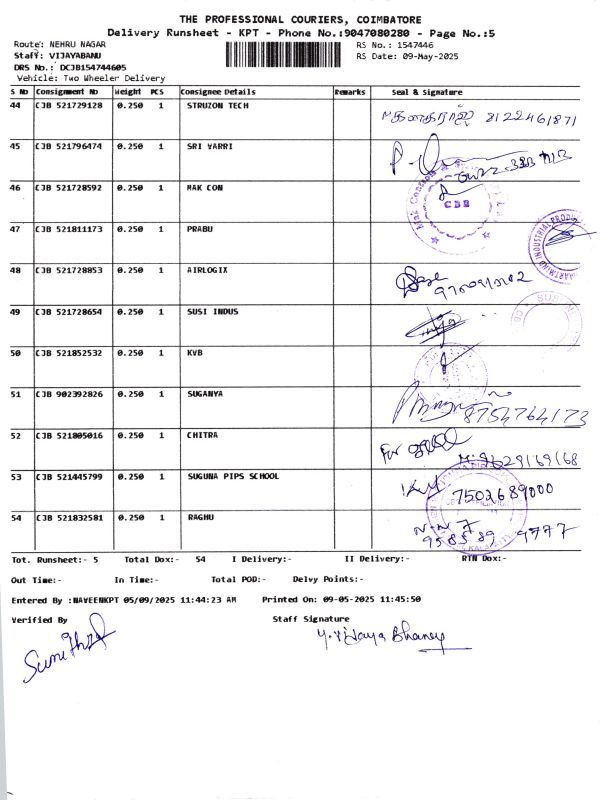 THE PROFESSIONAL COURIERS, COIMBATORE
Delivery Runsheet - KPT - Phone No.:9047080280 - Page No.:5
Route: NEHRU NAGAR
Staff: VIJAYABANU
DRS No.: DCJB154744605
Vehicle: Two Wheeler Delivery
RS No.: 1547446
RS Date: 09-May-2025
S No Consignment No Weight PCS Consignee Details Remarks Seal & Signature
44 CJB 521729128 0.250 1 STRUZON TECH 8122461871
45 CJB 521796474 0.250 1 SRI VARRI
46 CJB 521728592 0.250 1 MAK CON CBE
47 CJB 521811173 0.250 1 PRABU
48 CJB 521728853 0.250 1 AIRLOGIX
49 CJB 521728654 0.250 1 SUSI INDUS
50 CJB 521852532 0.250 1 KVB
51 CJB 902392826 0.250 1 SUGANYA 8754764173
52 CJB 521805016 0.250 1 CHITRA For
53 CJB 521445799 0.250 1 SUGUNA PIPS SCHOOL 7502689000
54 CJB 521832581 0.250 1 RAGHU
Tot. Runsheet:- 5 Total Dox:- 54 I Delivery:- II Delivery:- RTN Dox:-
Out Time:- In Time:- Total POD:- Delvy Points:-
Entered By :NAVEENKPT 05/09/2025 11:44:23 AM Printed On: 09-05-2025 11:45:50
Verified By Staff Signature
Y. Vijaya Bhaney